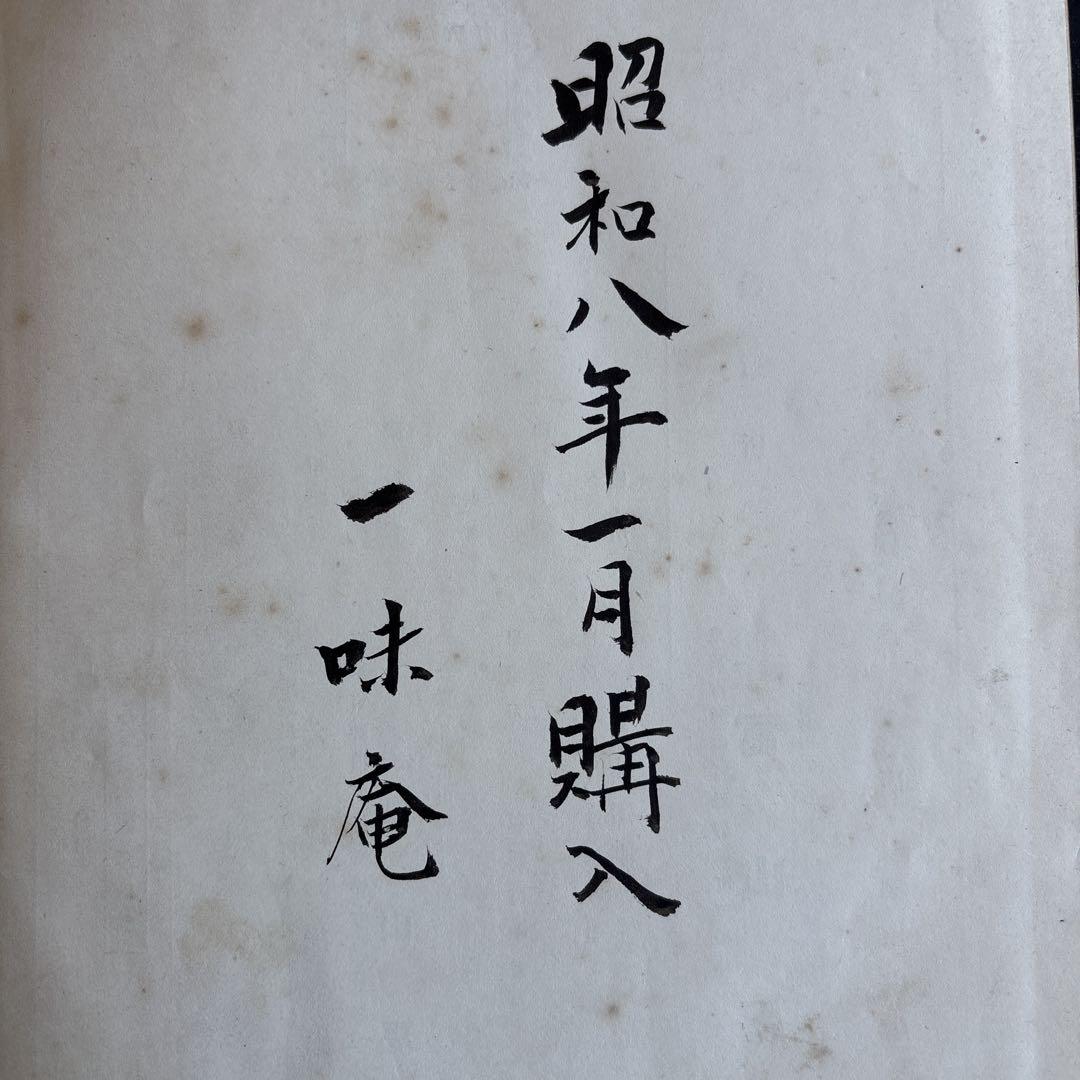 昭和八年一月購入
一味庵